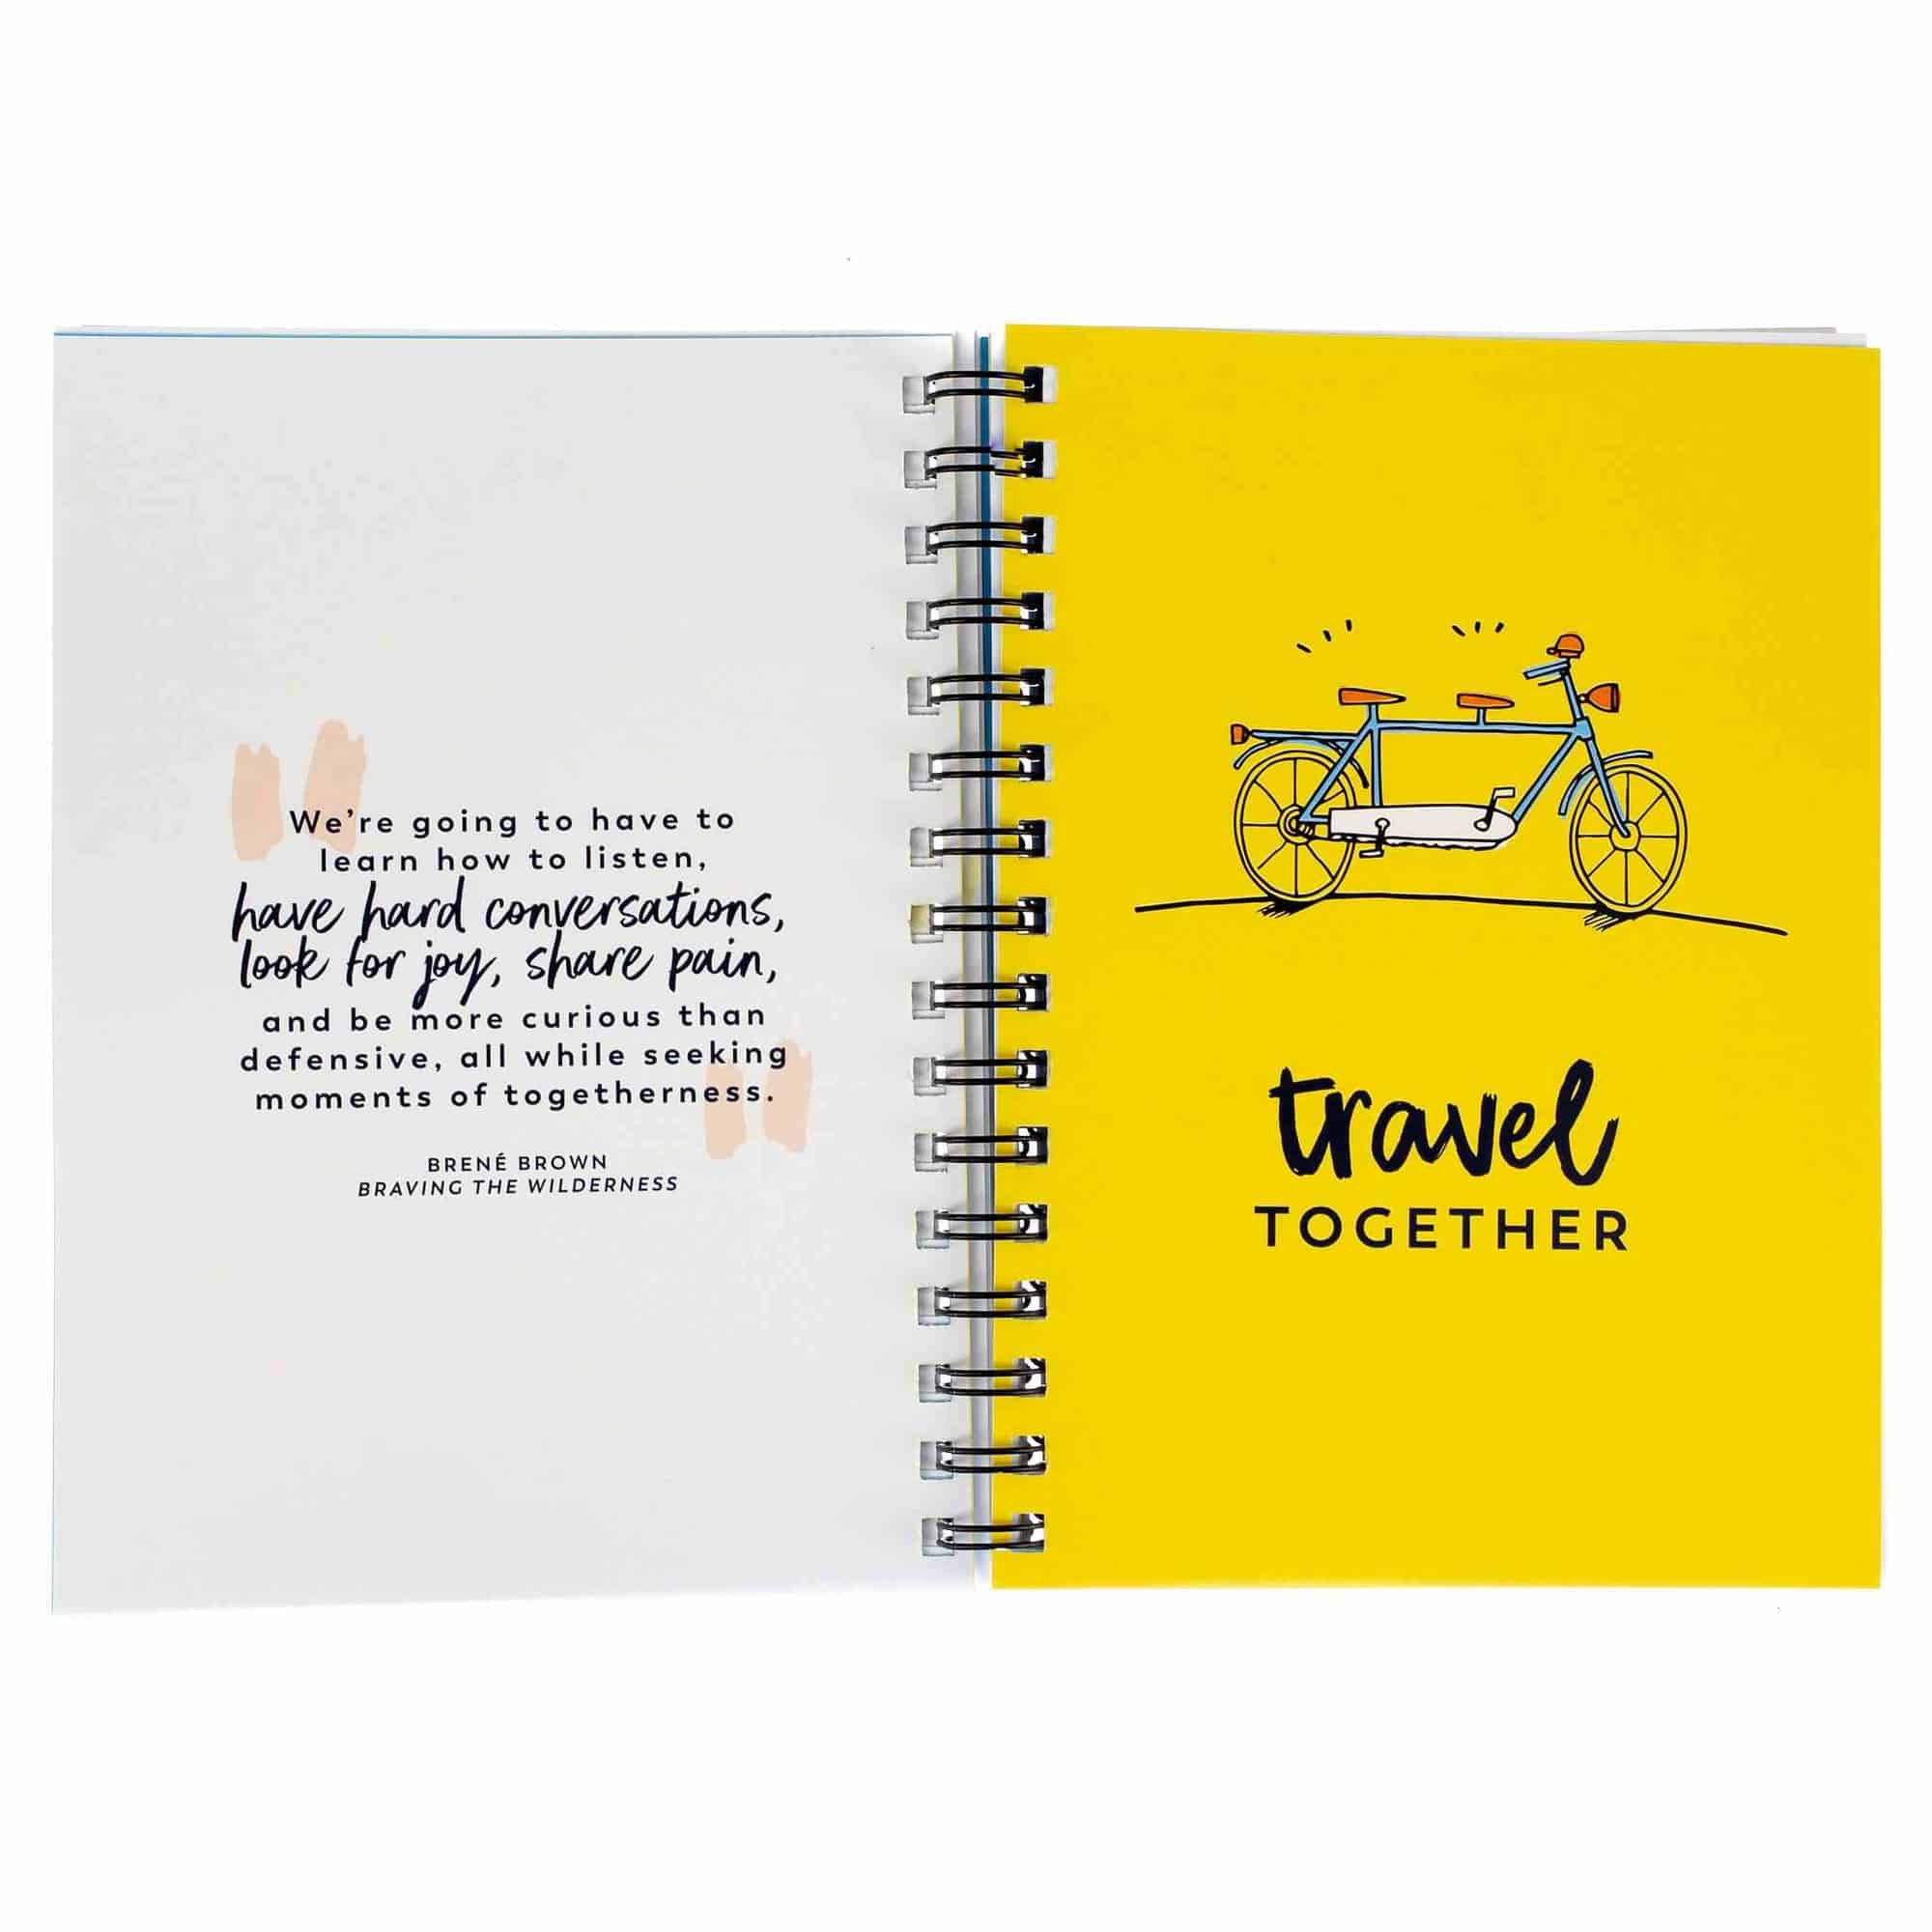 We're going to have to
learn how to listen,
have hard conversations,
look for joy, share pain,
and be more curious than
defensive, all while seeking
moments of togetherness.
BRENÉ BROWN
BRAVING THE WILDERNESS
travel
TOGETHER